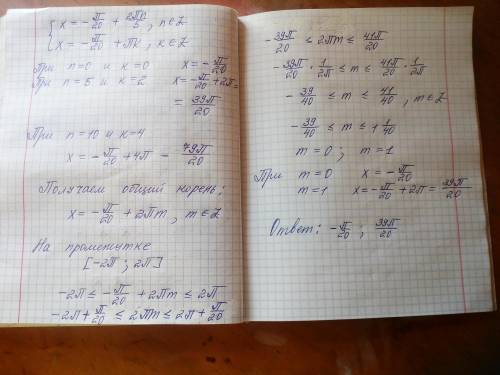 { x = -π/20 + 2πn/5, n∈Z
x = -π/20 + πк, к∈Z
При n=0 и к=0 x = -π/20
При n=5 и к=2 x = -π/20 + 2π =
= 39π/20
При n=10 и к=4
x = -π/20 + 4π - 79π/20
Получаем общий корень:
x = -π/20 + 2πm, m∈Z
На промежутке
[-2π; 2π]
-2π ≤ -π/20 + 2πm ≤ 2π
-2π + π/20 ≤ 2πm ≤ 2π + π/20
-39π/20 ≤ 2πm ≤ 41π/20
-39π/20 · 1/2π ≤ m ≤ 41π/20 · 1/2π
-39/40 ≤ m ≤ 41/40, m∈Z
-39/40 ≤ m ≤ 1 1/40
m=0; m=1
При m=0 x = -π/20
m=1 x = -π/20 + 2π = 39π/20
Ответ: -π/20; 39π/20